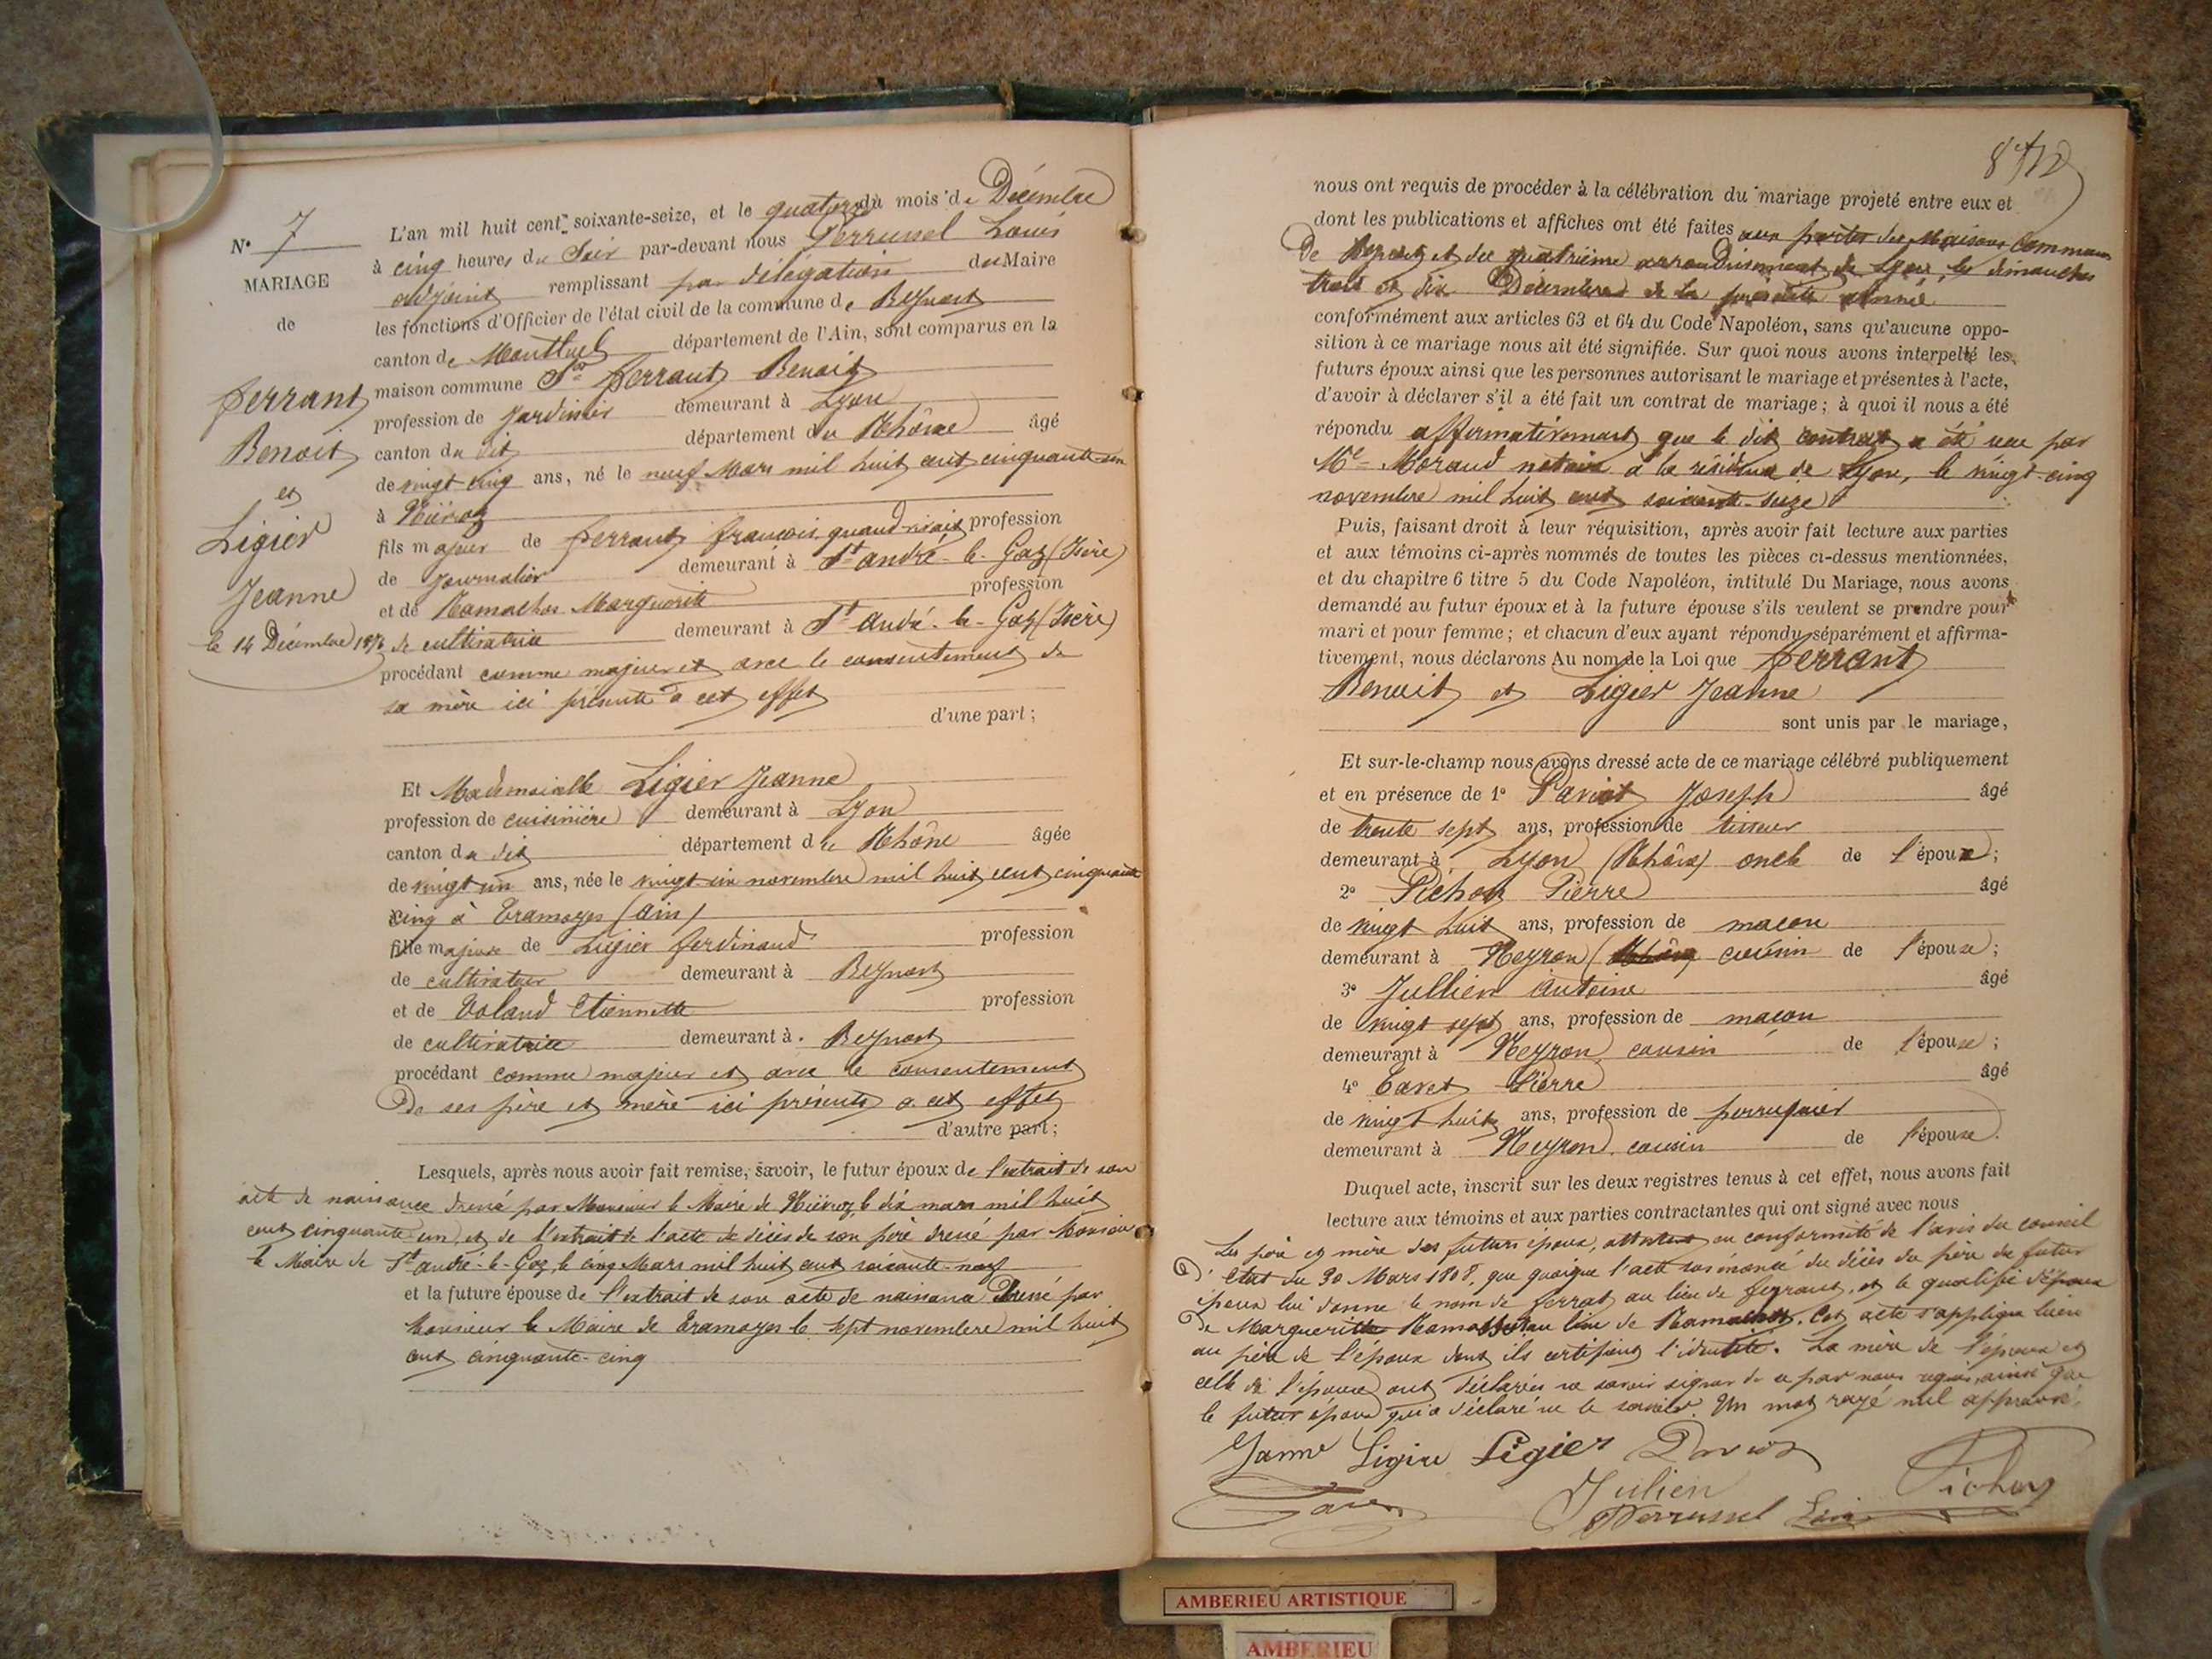 N° 7
MARIAGE
de
Ferrant
Benoit
et
Ligier
Jeanne
le 14 Décembre 1876
L'an mil huit cent soixante-seize, et le quatorze du mois de Décembre
à cinq heures du Soir par-devant nous Perrussel Louis
adjoint remplissant par délégation du Maire
les fonctions d'Officier de l'état civil de la commune de Beynost
canton de Montluel département de l'Ain, sont comparus en la
maison commune Sr Ferrant Benoit
profession de Jardinier demeurant à Lyon
canton du dit département du Rhône âgé
de vingt-cinq ans, né le neuf Mars mil huit cent cinquante-un
à Niévroz
fils majeur de Ferrant François quand vivait profession
de Journalier demeurant à St André-le-Gaz (Isère)
et de Marguerite profession
de cultivatrice demeurant à St André-le-Gaz (Isère)
procédant comme majeur et avec le consentement de
sa mère ici présente à cet effet
d'une part ;
Et Mademoiselle Ligier Jeanne
profession de cuisinière demeurant à Lyon
canton du dit département du Rhône âgée
de vingt un ans, née le vingt un novembre mil huit cent cinquante
cinq à Tramoyes (Ain)
fille majeure de Ligier Ferdinand profession
de cultivateur demeurant à Beynost
et de Voland Etiennette profession
de cultivatrice demeurant à Beynost
procédant comme majeur et avec le consentement
De ses père et mère ici présents à cet effet
d'autre part ;
Lesquels, après nous avoir fait remise, savoir, le futur époux de l'extrait de son
acte de naissance dressé par Monsieur le Maire de Niévroz, le dix mars mil huit
cent cinquante-un, et de l'extrait de l'acte de décès de son père dressé par Monsieur
le Maire de St André-le-Gaz, le cinq Mars mil huit cent soixante-neuf
et la future épouse de l'extrait de son acte de naissance Dressé par
Monsieur le Maire de Tramoyes le sept novembre mil huit
cent cinquante-cinq
nous ont requis de procéder à la célébration du mariage projeté entre eux et
dont les publications et affiches ont été faites aux portes des Maisons Communes
De Beynost et du quatrième arrondissement de Lyon, les dimanches
trois et dix Décembre de la présente année
conformément aux articles 63 et 64 du Code Napoléon, sans qu'aucune oppo-
sition à ce mariage nous ait été signifiée. Sur quoi nous avons interpellé les
futurs époux ainsi que les personnes autorisant le mariage et présentes à l'acte,
d'avoir à déclarer s'il a été fait un contrat de mariage ; à quoi il nous a été
répondu affirmativement que le dit contrat a été reçu par
Me Morand notaire à la résidence de Lyon, le vingt-cinq
novembre mil huit cent soixante-seize
Puis, faisant droit à leur réquisition, après avoir fait lecture aux parties
et aux témoins ci-après nommés de toutes les pièces ci-dessus mentionnées,
et du chapitre 6 titre 5 du Code Napoléon, intitulé Du Mariage, nous avons
demandé au futur époux et à la future épouse s'ils veulent se prendre pour
mari et pour femme ; et chacun d'eux ayant répondu séparément et affirma-
tivement, nous déclarons Au nom de la Loi que Ferrant
Benoit et Ligier Jeanne
sont unis par le mariage,
Et sur-le-champ nous avons dressé acte de ce mariage célébré publiquement
et en présence de 1° Joseph âgé
de trente sept ans, profession de tisseur
demeurant à Lyon (Rhône) oncle de l'époux ;
2° Pichon Pierre âgé
de vingt huit ans, profession de maçon
demeurant à Neyron cousin de l'épouse ;
3° Jullien Antoine âgé
de vingt sept ans, profession de maçon
demeurant à Neyron cousin de l'épouse ;
4° Tavet Pierre âgé
de vingt huit ans, profession de perruquier
demeurant à Neyron cousin de l'épouse.
Duquel acte, inscrit sur les deux registres tenus à cet effet, nous avons fait
lecture aux témoins et aux parties contractantes qui ont signé avec nous
Les père et mère des futurs époux, attestent en conformité de l'avis du conseil
D'état du 30 Mars 1808, que quoique l'acte susénoncé du décès du père du futur
époux lui donne le nom de Ferrat au lieu de Ferrant, et le qualifie d'époux
De Marguerite au lieu de Cet acte s'applique bien
au père de l'époux dont ils certifient l'identité. La mère de l'époux et
celle de l'épouse ont déclarées ne savoir signer de ce par nous requis, ainsi que
le futur époux qui a déclaré ne le savoir. Un mot rayé nul approuvé.
Ligier
Julien Pichon
Perrussel Louis
AMBERIEU ARTISTIQUE
AMBERIEU